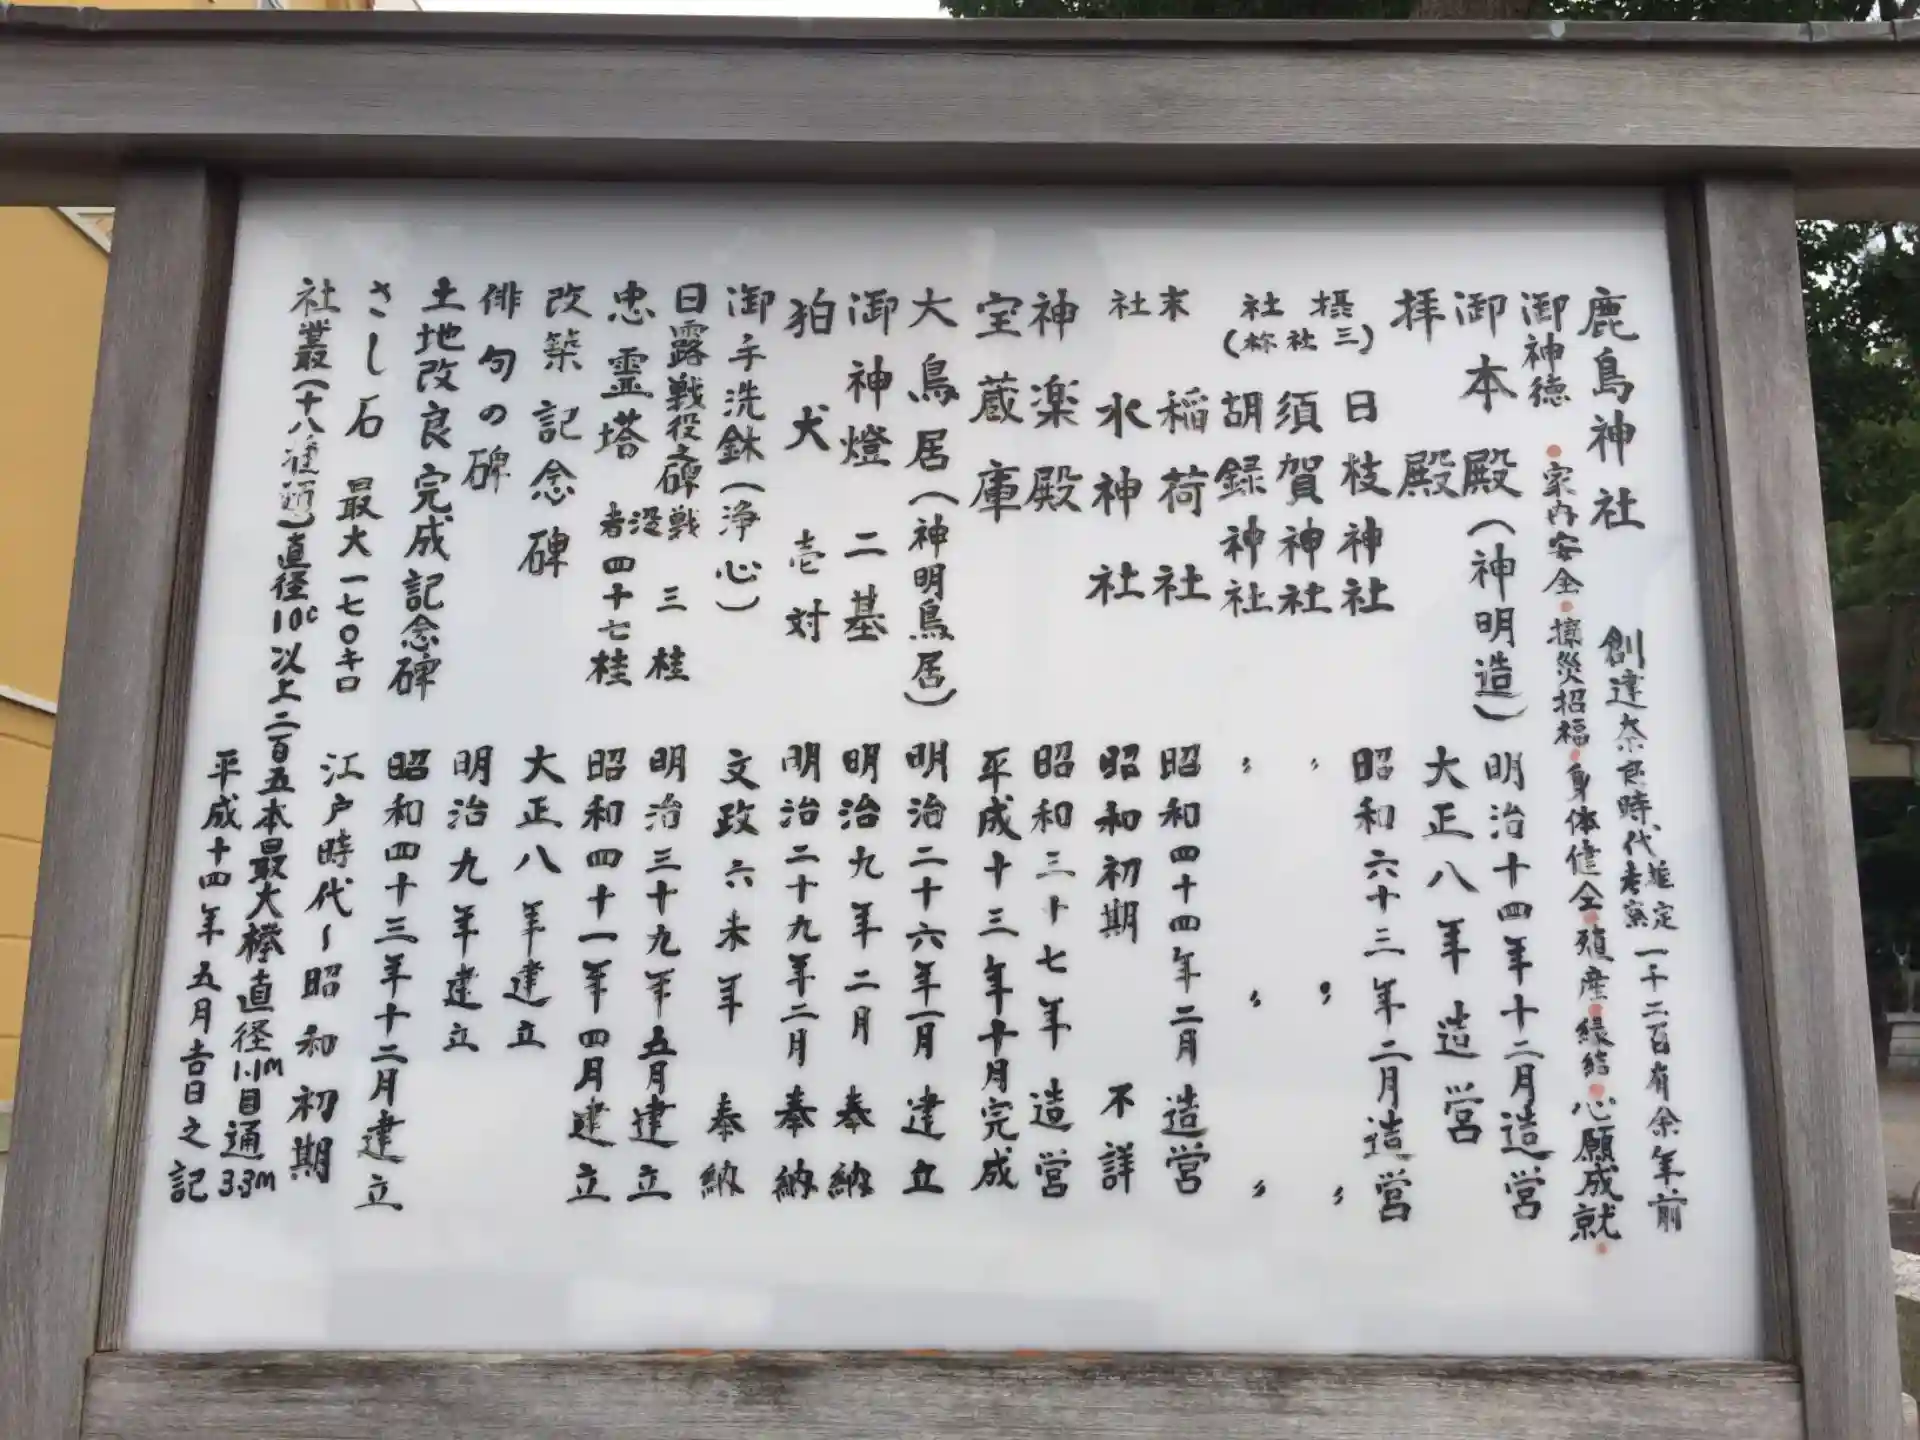 鹿島神社 創建奈良時代推定考察一千二百有余年前
御神徳 ・家内安全・攘災招福・身体健全・殖産・縁結・心願成就・
御本殿(神明造) 明治十四年十二月造営
拝殿 大正八年造営
摂社(三社祢) 日枝神社 昭和六十三年二月造営
須賀神社 〃 〃 〃
胡録神社 〃 〃 〃
末社 稲荷社 昭和四十四年二月造営
水神社 昭和初期 不詳
神楽殿 昭和三十七年造営
宝蔵庫 平成十三年十月完成
大鳥居(神明鳥居) 明治二十六年一月建立
御神燈 二基 明治九年二月奉納
狛犬 壱対 明治二十九年二月奉納
御手洗鉢(浄心) 文政六未年 奉納
日露戦役之碑 戦没者 三桂 明治三十九年五月建立
忠霊塔 四十七桂 昭和四十一年四月建立
改築記念碑 大正八年建立
俳句の碑 明治九年建立
土地改良完成記念碑 昭和四十三年十二月建立
さし石 最大一七〇キロ 江戸時代~昭和初期
社叢(十八種類)直径10c以上二百五本最大欅直径1.1m目通3.3m
平成十四年五月吉日之記